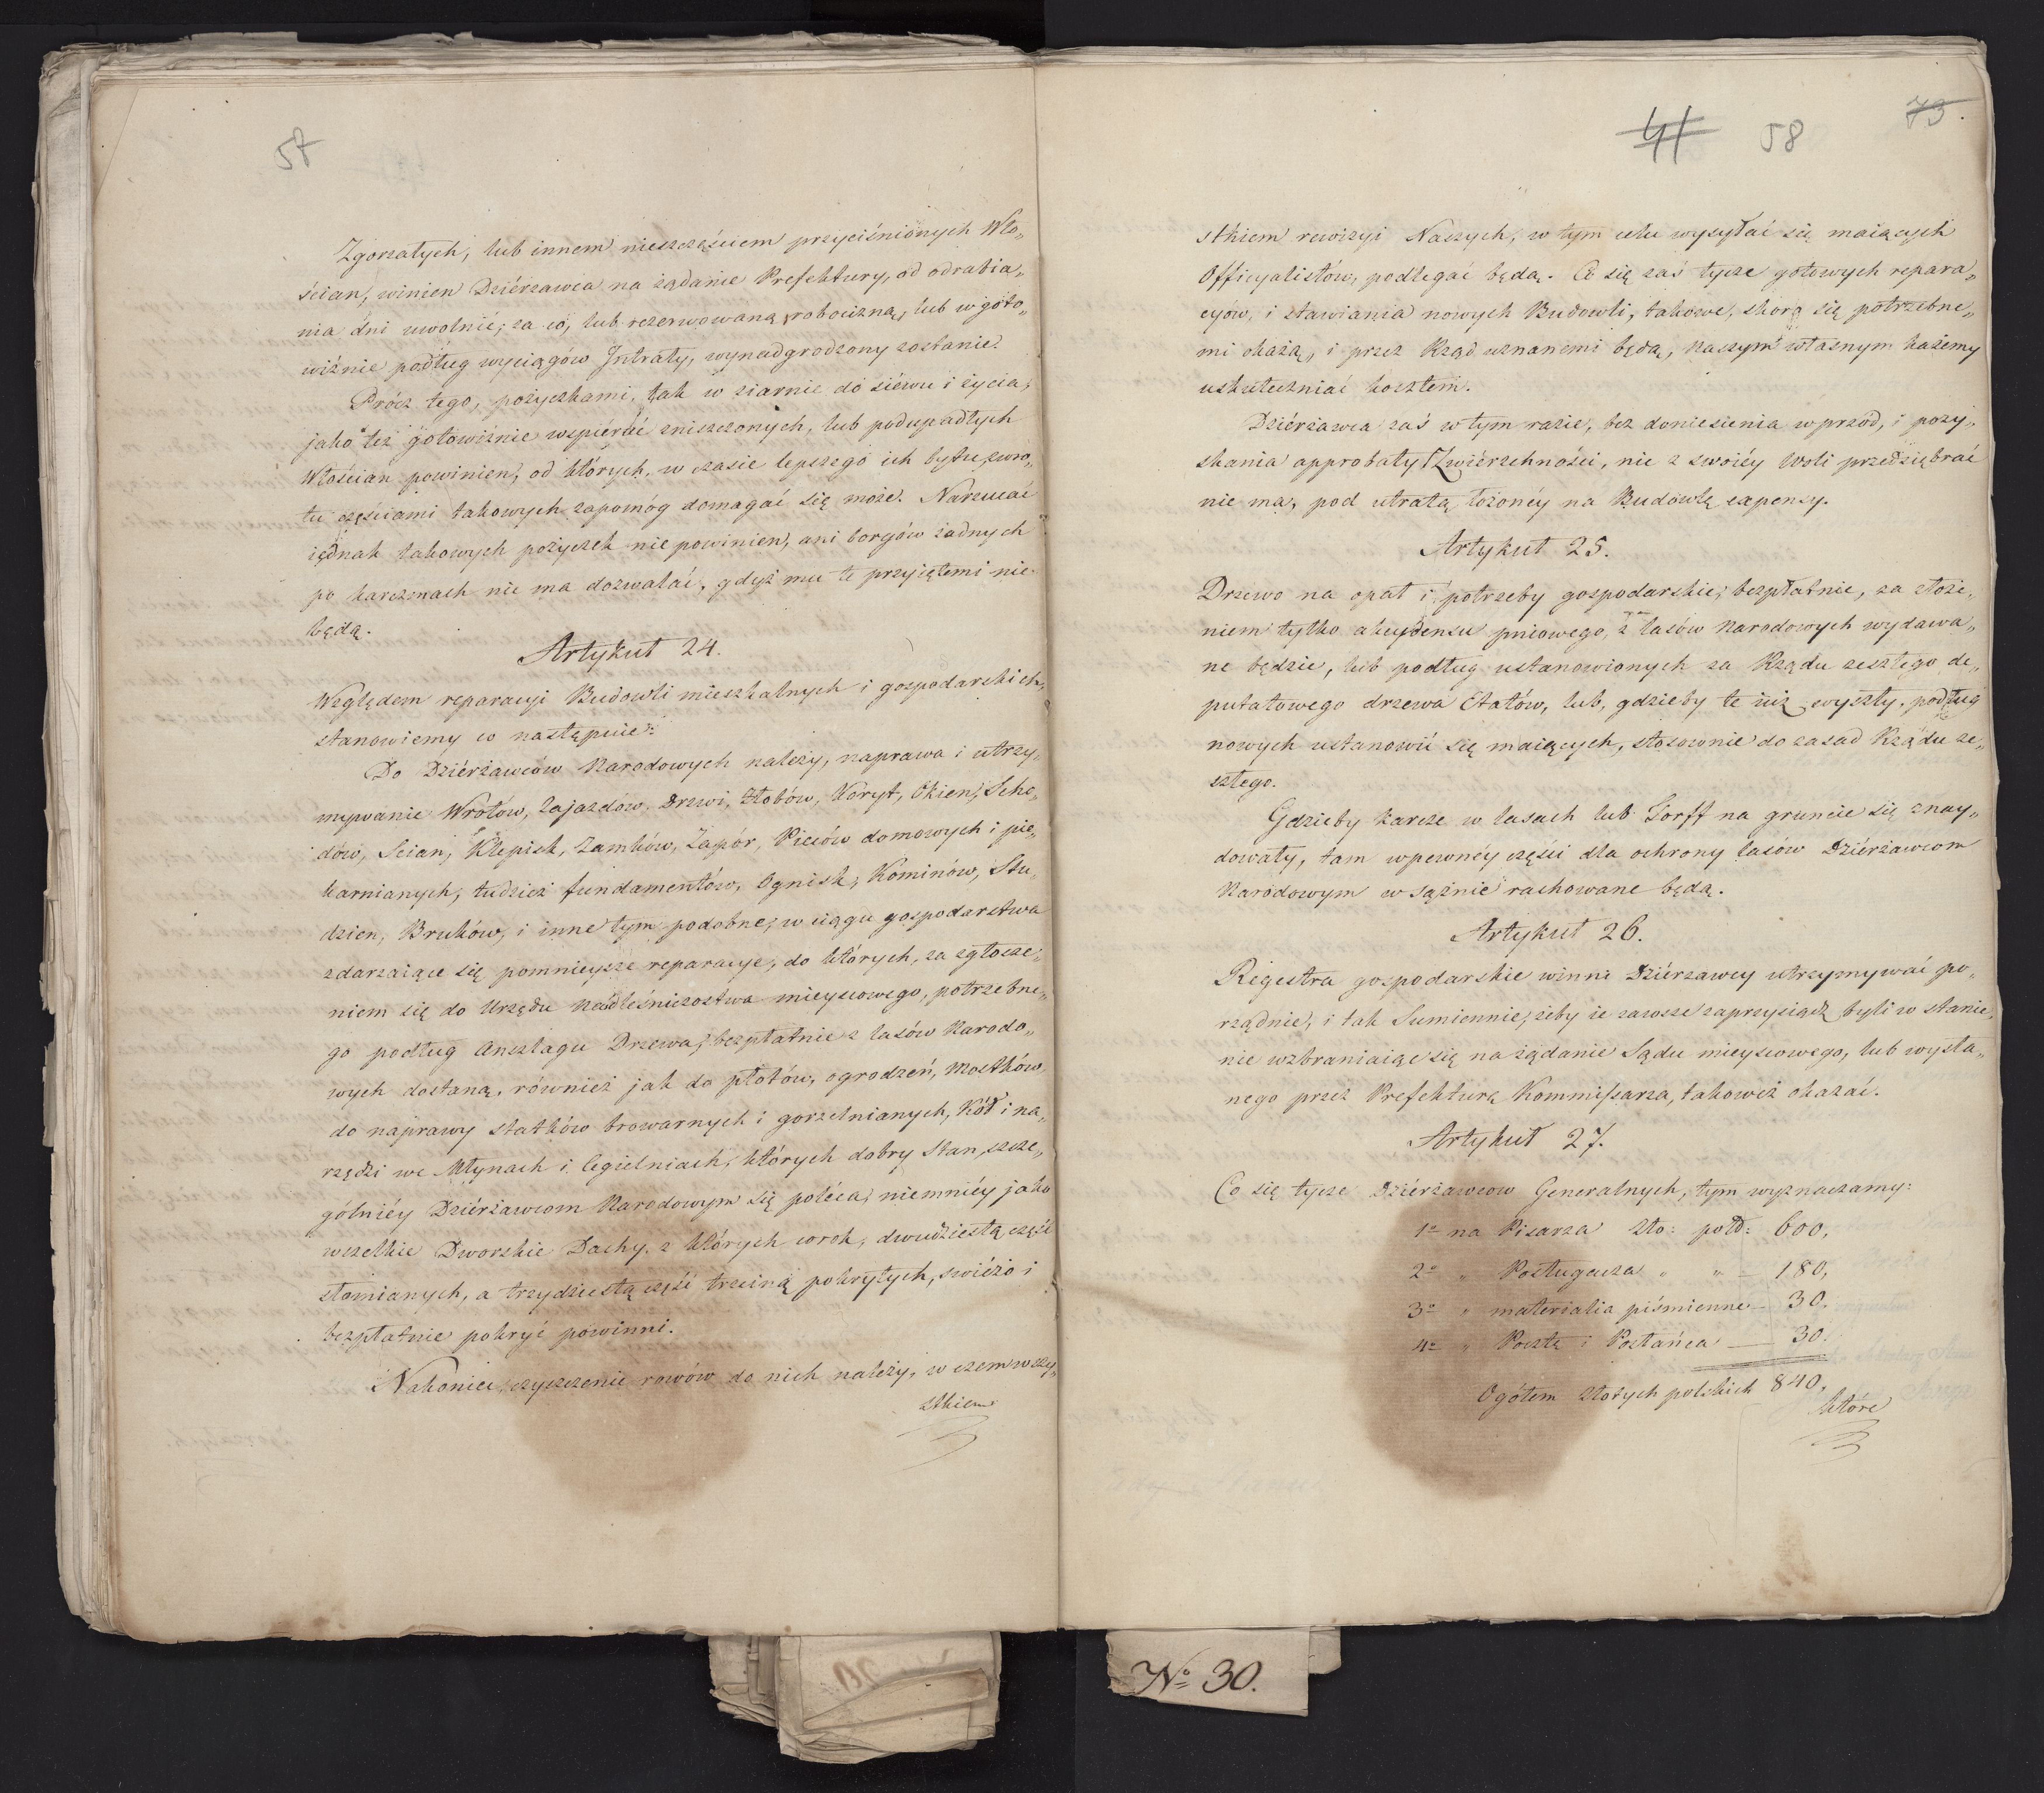 57
Zgorzałych, lub innem nieszczęściem przyciśnionych Wło„
ścian, winien Dziérzawca na żądanie Prefektury, od odrabia„
nia dni uwolnić; za co, lub rezerwowaną robocizną, lub w goto„
wiźnie podług wyciągów Intraty, wynadgrodzony zostanie.
Prócz tego, pożyczkami, tak w ziarnie do siéwu i życia,
jako też gotowiźnie wspiérać zniszczonych, lub podupadłych
Włościan powinien, od których, w czasie lepszego ich bytu, zwro„
tu częściami takowych zapomóg domagać się może. Narzucać
iednak takowych pożyczek nie powinien, ani borgów żadnych
po karczmach nie ma dozwalać, gdyż mu te przyiętemi nie
będą.
Artykuł 24.
Względem reparacyi Budowli mieszkalnych i gospodarskich,
stanowiemy co następuie:
Do Dziérżawców Narodowych należy, naprawa i utrzy„
mywanie Wrotów, Zajazdów, Drzwi, Żłobów, Koryt, Okien, Scho„
dów, Scian, Klepisk, Zamków, Zapór, Pieców domowych i pie„
karnianych, tudzież fundamentów, Ognisk, Kominów, Stu„
dzien, Bruków, i inne tym podobne, w ciągu gospodarstwa
zdarzaiące się pomnieysze reparacye, do których, za zgłosze„
niem się do Urzędu Nadleśniczostwa mieyscowego, potrzebne„
go podług Anszlagu Drzewa, bezpłatnie z lasów Narodo„
wych dostaną, również jak do płotów, ogrodzeń, Mostków,
do naprawy statków browarnych i gorzelnianych, Kół i na„
rzędzi we Młynach i Cegielniach, których dobry stan, szcze„
gólniéy Dziérżawcom Narodowym się poléca, niemniéy jako
wszelkie Dworskie Dachy, z których corok, dwudziestą część
słomianych, a trzydziestą część trzciną pokrytych, swiéżo i
bezpłatnie pokryć powinni.
Nakoniec czyszczenie rowów do nich należy, w czem wszy„
stkiem
41 58 73.
stkiem rewizyi Naszych, w tym celu wysyłać się maiących
Officyalistów, podlegać będą. Co się zaś tycze gotowych repara„
cyów, i stawiania nowych Budowli, takowe, skoro się potrzebne„
mi okażą, i przez Rząd uznanemi będą, naszym własnym każemy
uskuteczniać kosztem.
Dziérżawca zaś w tym razie, bez doniesienia wprzód, i pozy„
skania approbaty Zwiérzchności, nic z swoiéy woli przedsiębrać
nie ma, pod utratą łożonéy na Budowlę expensy.
Artykuł 25.
Drzewo na opał i potrzeby gospodarskie, bezpłatnie, za złoże„
niem tylko akcydensu pniowego, z lasów Narodowych wydawa„
ne będzie, lub podług ustanowionych za Rządu zeszłego de„
putatowego drzewa Etatów, lub, gdzieby te iuż wyszły, podług
nowych ustanowić się maiących, stosownie do zasad Rządu ze„
szłego.
Gdzieby karcze w lasach lub Torff na gruncie się znay„
dowały, tam w pewnéy części dla ochrony lasów Dziérżawcom
Narodowym w sążnie rachowane będą.
Artykuł 26.
Regestra gospodarskie winni Dziérżawcy utrzymywać po„
rządnie, i tak Sumiennie, żeby ie zawsze zaprzysiądz byli w stanie,
nie wzbraniaiąc się na żądanie Sądu mieyscowego, lub wysła„
nego przez Prefekturę Kommissarza, takowéż okazać.
Artykuł 27.
Co się tycze Dziérżawcow Generalnych, tym wyznaczamy:
1o na Pisarza Zło: pol: 600,
2o „ Posługacza „ „ — 180,
3o „ materialia piśmienne — 30.
4o „ Pocztę i Posłańca — 30.
Ogółem złotych polskich 840,
które
No 30.